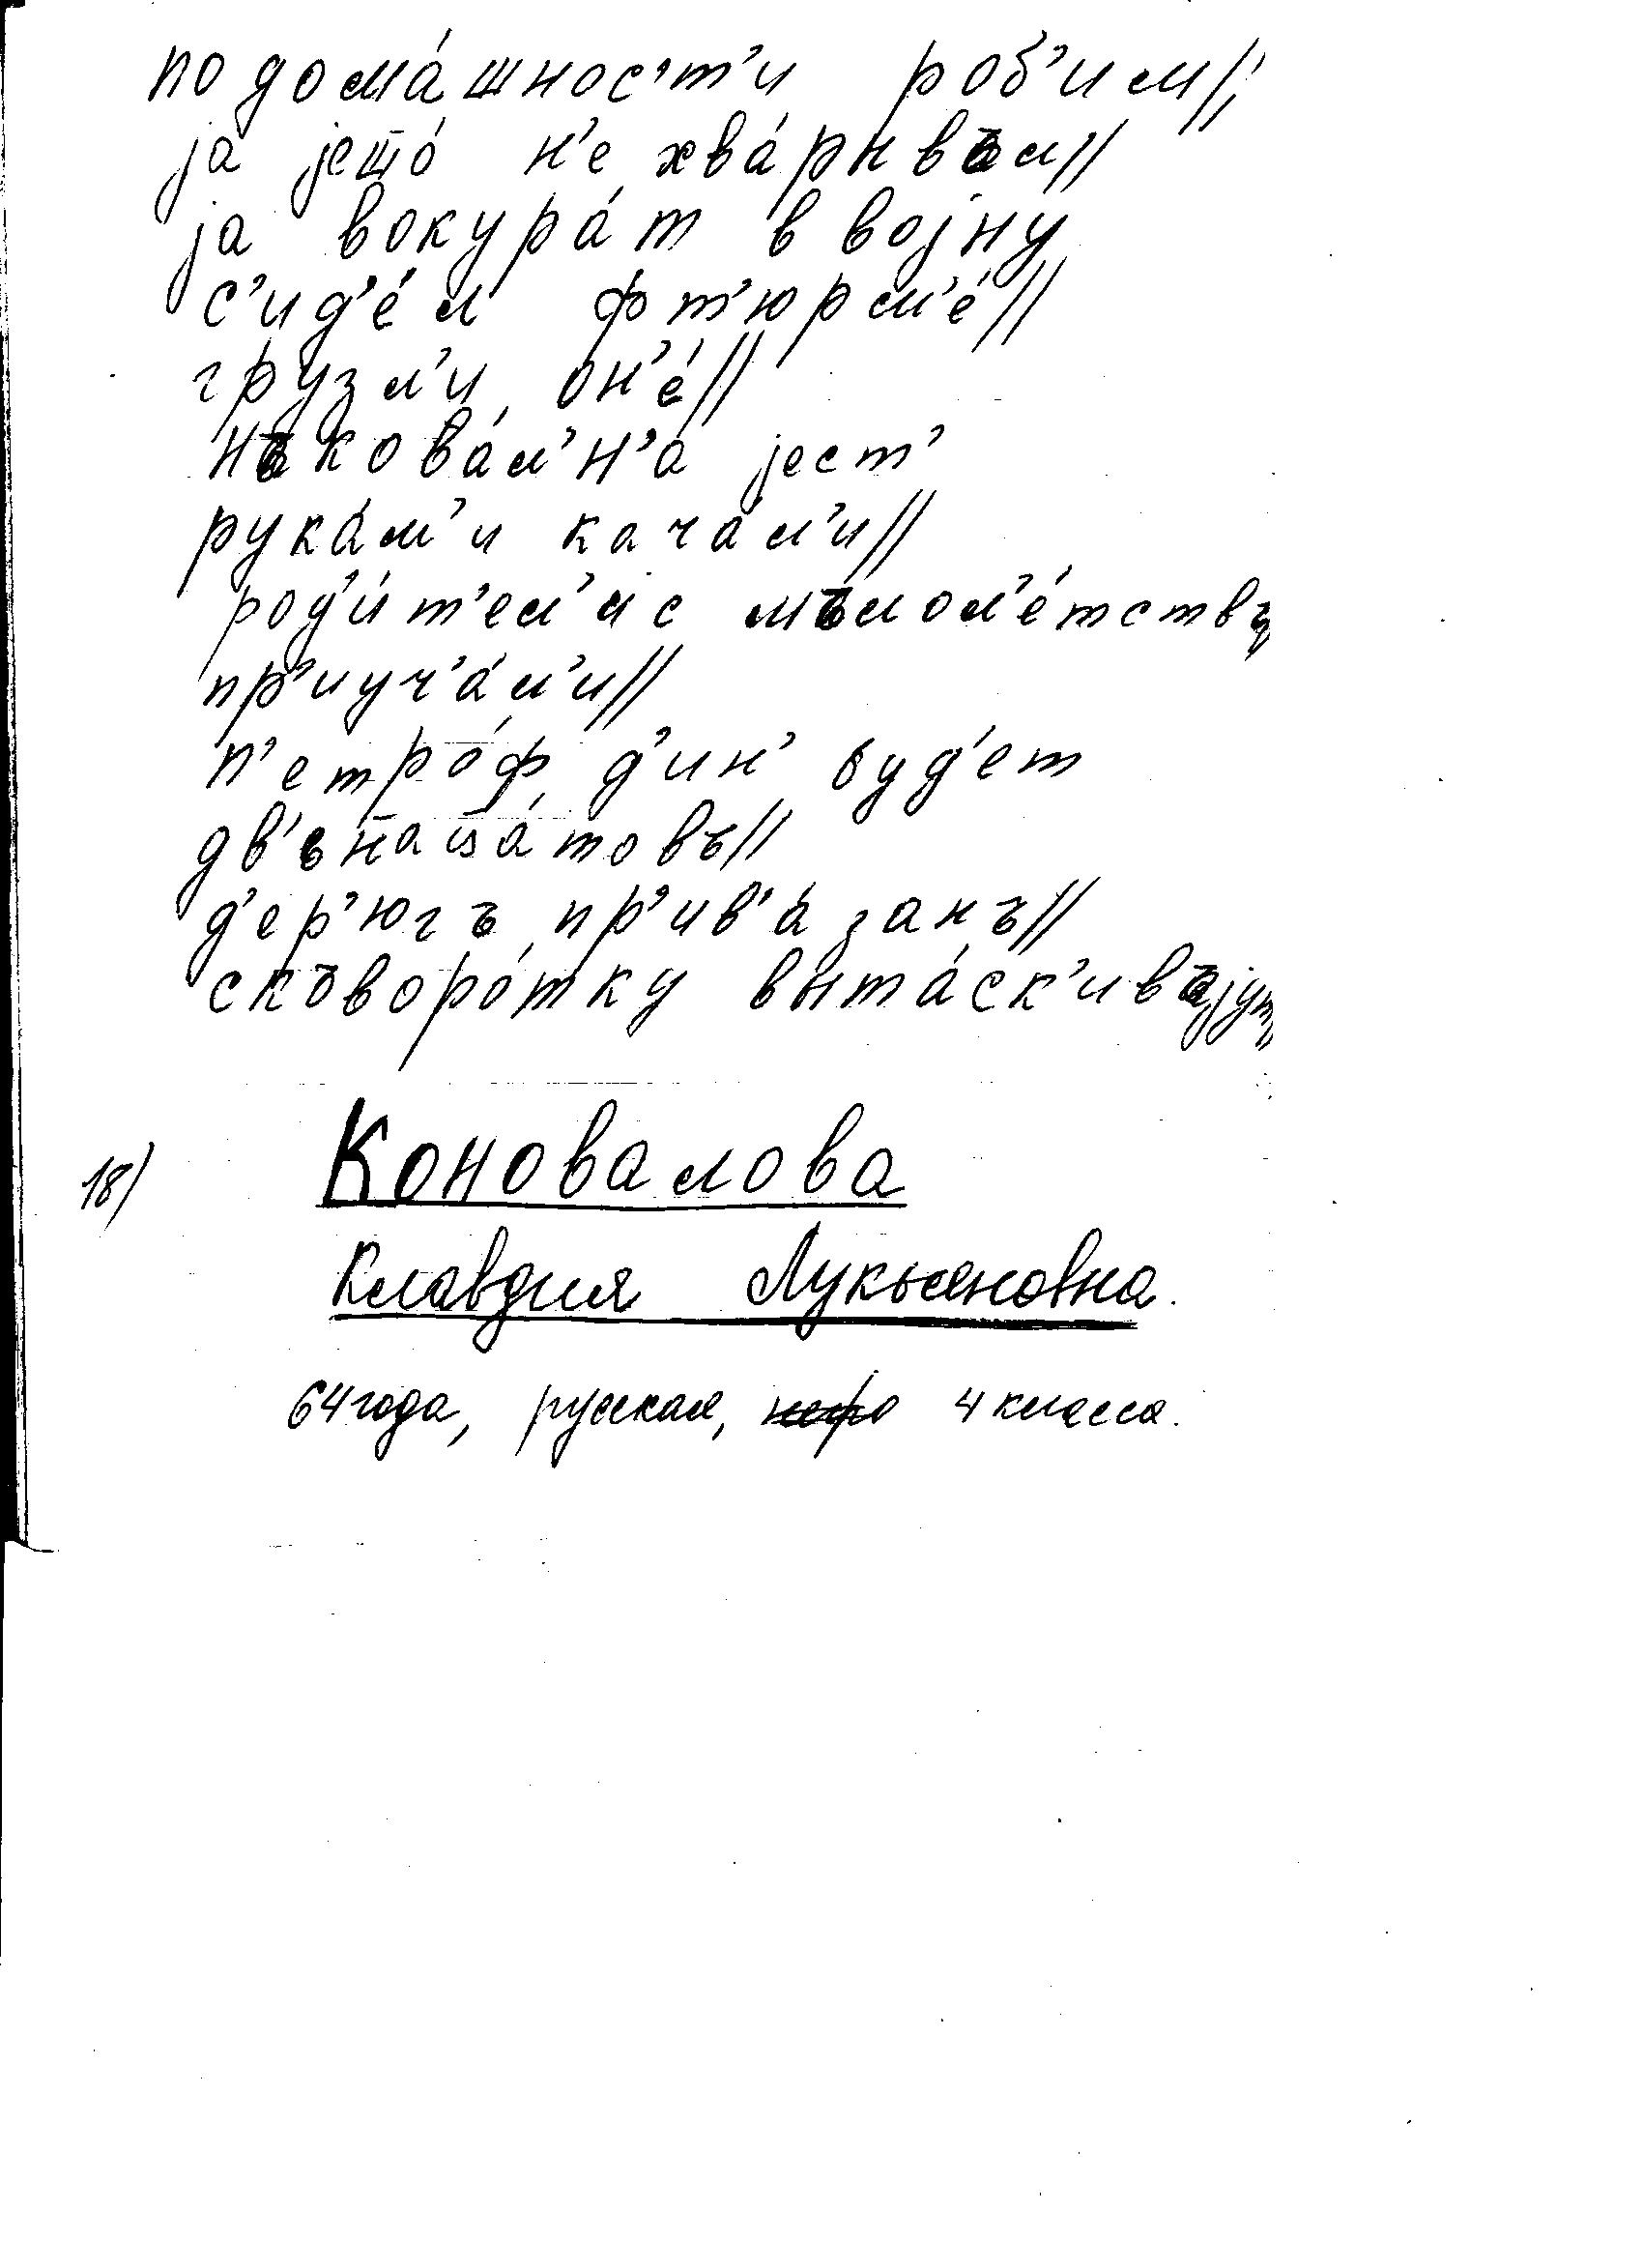 по дома́шност'и роб'им//
jа jешо́ н'е хва́рывъл//
jа вокура́т в воjну
с'ид'е́л фт'юрм'е́//
грузл'и он'е́//
нъкова́л'н'а jест'
рука́м'и кача́л'и//
род'и́т'ел'и с мълол'е́тствъ
пр'иуч'а́л'и//
п'етро́ф д'ин' буд'ет
дв'ьнаца́товъ//
д'ер'югъ пр'ив'а́занъ//
скъворо́тку выта́ск'ивъjут//
18) Коновалова
Клавдия Лукьяновна.
64 года, русская, 4 класса.